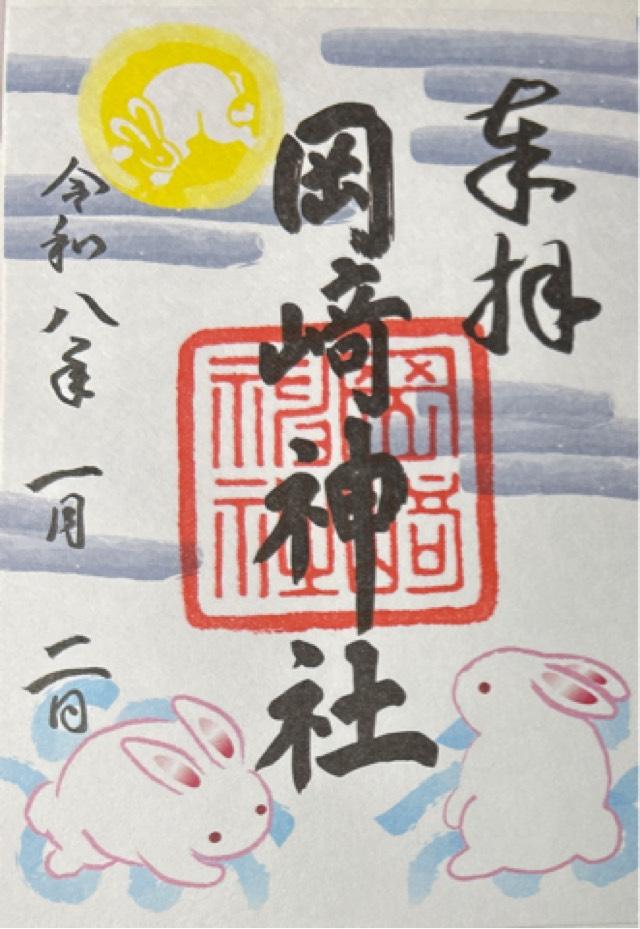 奉拝
岡﨑神社
岡﨑神社
令和八年 一月 二日